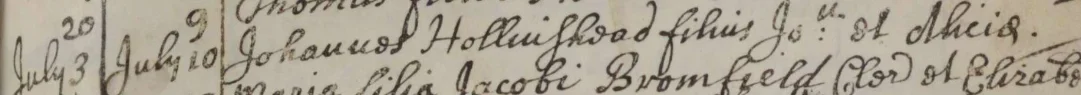 Thomas
20 9
July 3 July 10 Johannes Hollinshead filius Jo:n et Alicia.
Maria filia Jacobi Bromfield Cler et Elizabe